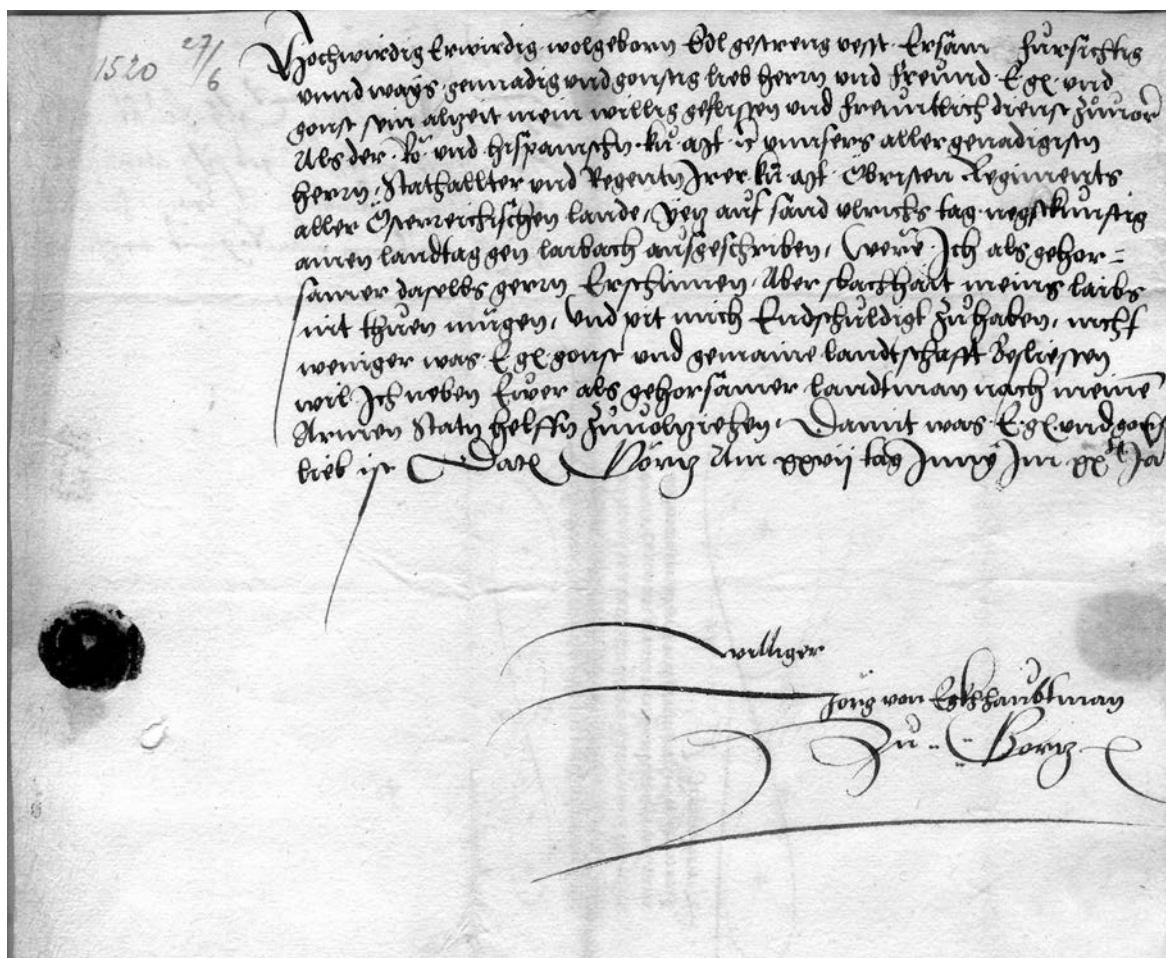 1520 27/6
Hochwirdig Erwirdig wolgeborn Edl gestreng vesst Ersam fursichtig
vnnd ways gennadig vnd gonstig lieb herrn vnd freund E gl vnd
gonst sein alzeit mein willig geflissen vnd freuntlich dienst zuuor
Als der Rö vnd hispanischn kü Mt vnnsers aller genadigistn
herrn Stathallter vnd Regentn Jrer kü Mt Obristen Regiments
aller Österreichischen lande yetz auf sand vlrichs tag negstkunftig
ainen landtag gen laibach ausgeschriben, were Jch als gehor=
samer daselbs gerrn Erschinnen Aber sbachhait meins laibs
nit thuen mugen, vnd pit mich Endschuldigt zu haben, nicht
weniger was E gl gonst vnd gemaine landtschafft Besliessen
wil Jch neben Ewer als gehorsamer landtman nach meinē
Armen Statn helffn zuuolziehen Damit was E gl vnd gonst
lieb ist Datū Görtz Am xxvij tag Junÿ Jm xxten Ja
williger
Jörg von Egkh haubtman
Zu Görtz